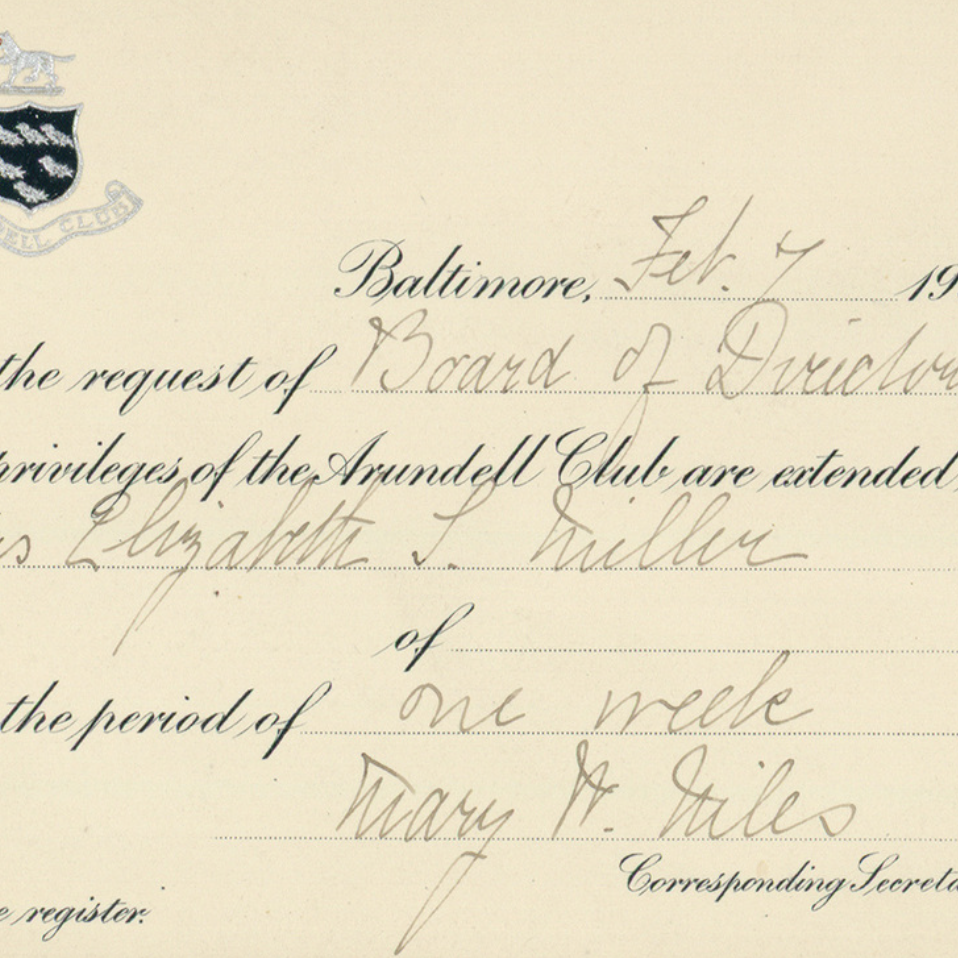 ELL CLUB
Baltimore, Feb. 7 19
the request of Board of Director
privileges of the Arundell Club are extended
is Elizabeth S. Miller
of
the period of one week
Mary W. Miles
Corresponding Secreta
e register.